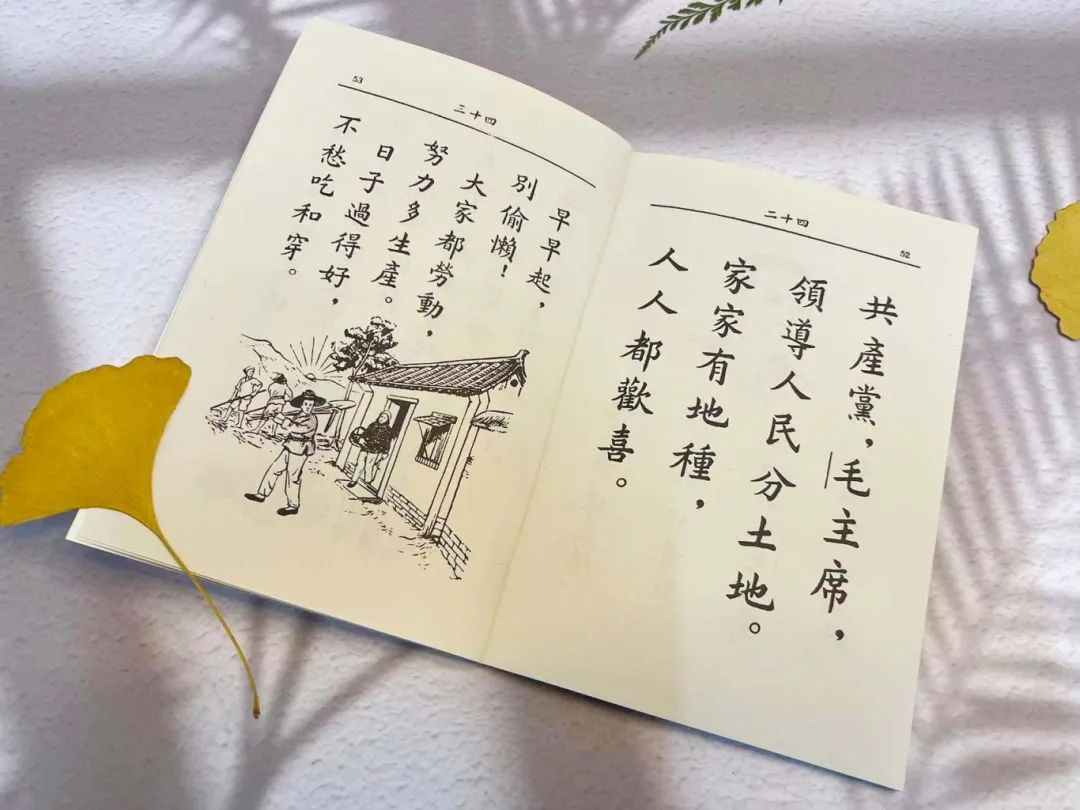 52
二十四
共產黨，毛主席，
領導人民分土地。
家家有地種，
人人都歡喜。
53
三十四
早早起，
別偷懶！
大家都勞動，
努力多生產。
日子過得好，
不愁吃和穿。